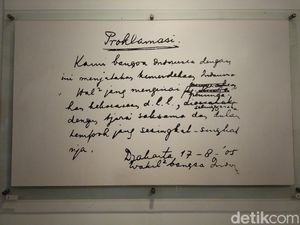 Proklamasi.
Kami bangsa Indonesia dengan
ini menjatakan kemerdekaan Indonesia
Hal² jang mengenai
han kekoeasaan d.l.l.,
dengan tjara saksama dan dalam
tempoh jang sesingkat-singkat
nja.
Djakarta 17-8-'05
Wakil² bangsa Indon.
detikcom